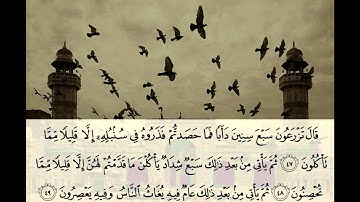 قَالَ تَزْرَعُونَ سَبْعَ سِنِينَ دَأَبًا فَمَا حَصَدتُّمْ فَذَرُوهُ فِي سُنۢبُلِهِۦٓ إِلَّا قَلِيلًا مِّمَّا
تَأْكُلُونَ ٤٧ ثُمَّ يَأْتِي مِنۢ بَعْدِ ذَٰلِكَ سَبْعٌ شِدَادٌ يَأْكُلْنَ مَا قَدَّمْتُمْ لَهُنَّ إِلَّا قَلِيلًا مِّمَّا
تُحْصِنُونَ ٤٨ ثُمَّ يَأْتِي مِنۢ بَعْدِ ذَٰلِكَ عَامٌ فِيهِ يُغَاثُ النَّاسُ وَفِيهِ يَعْصِرُونَ ٤٩